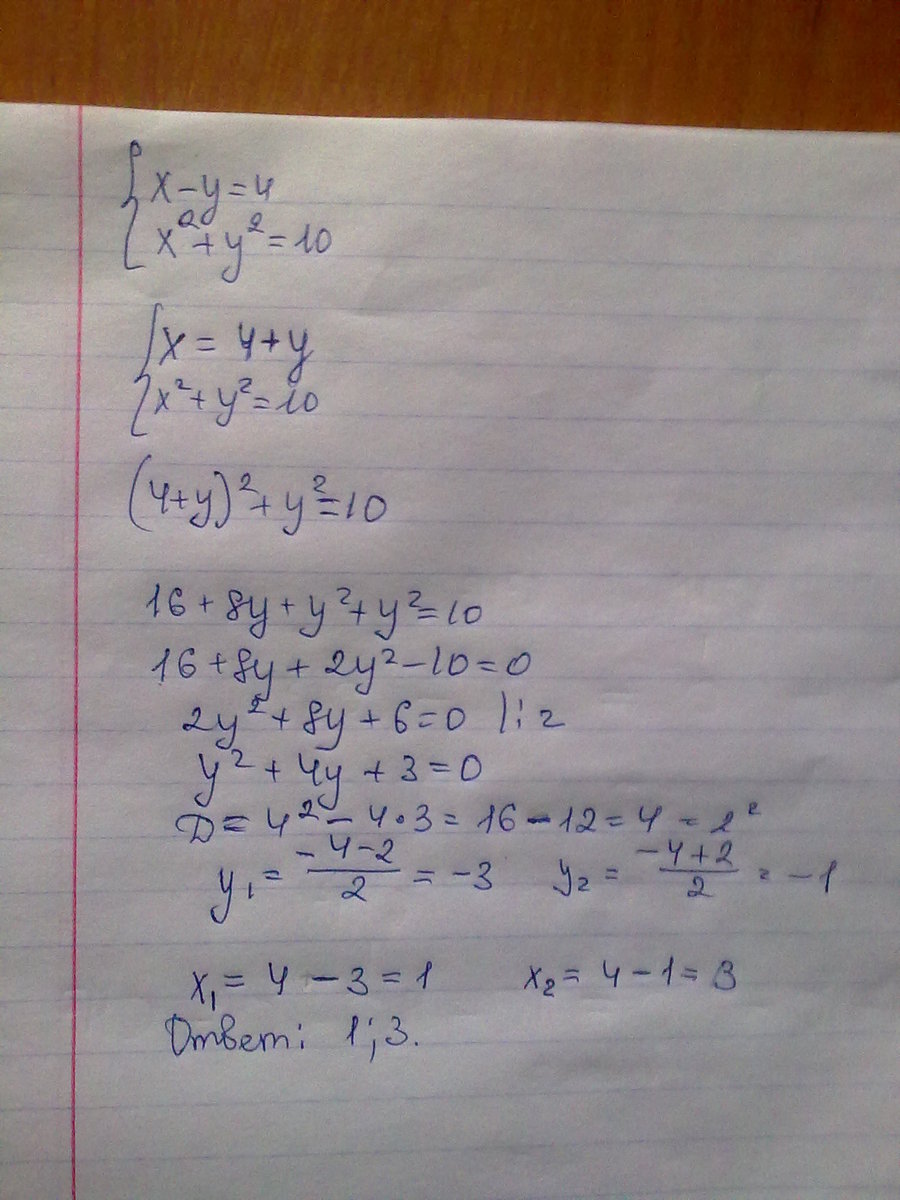 { x-y=4
x²+y²=10
{ x = 4+y
x²+y²=10
(4+y)²+y²=10
16+8y+y²+y²=10
16+8y+2y²-10=0
2y²+8y+6=0 |:2
y²+4y+3=0
D = 4²-4·3=16-12=4=2²
y₁ = (-4-2)/2 = -3 y₂ = (-4+2)/2 = -1
x₁ = 4-3=1 x₂ = 4-1=3
Ответ: 1;3.